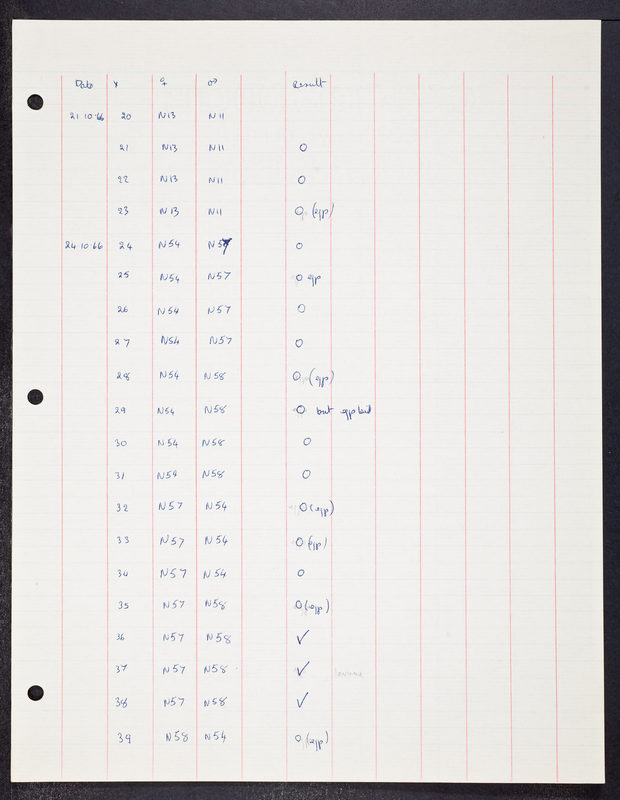 Date x ♀ ♂ Result
21.10.66 20 N13 N11
21 N13 N11 O
22 N13 N11 O
23 N13 N11 O (epp)
24.10.66 24 N54 N57 O
25 N54 N57 O epp
26 N54 N57 O
27 N54 N57 O
28 N54 N58 O (epp)
29 N54 N58 O but epp
30 N54 N58 O
31 N54 N58 O
32 N57 N54 O (epp)
33 N57 N54 O (epp)
34 N57 N54 O
35 N57 N58 O (epp)
36 N57 N58 ✓
37 N57 N58 ✓
38 N57 N58 ✓
39 N58 N54 O (epp)